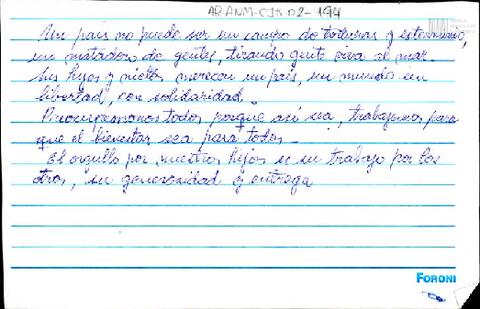 AR ANM-CJR 02-194
Un país no puede ser un campo de torturas y exterminio,
un matadero de gentes, tirando gente viva al mar.
Sus hijos y nietos merecen un país, un mundo en
libertad, con solidaridad.
Preocupemonos todos porque así sea, trabajemos para
que el bienestar sea para todos.
El orgullo por nuestros hijos es su trabajo por los
otros, su generosidad y entrega
FORONI